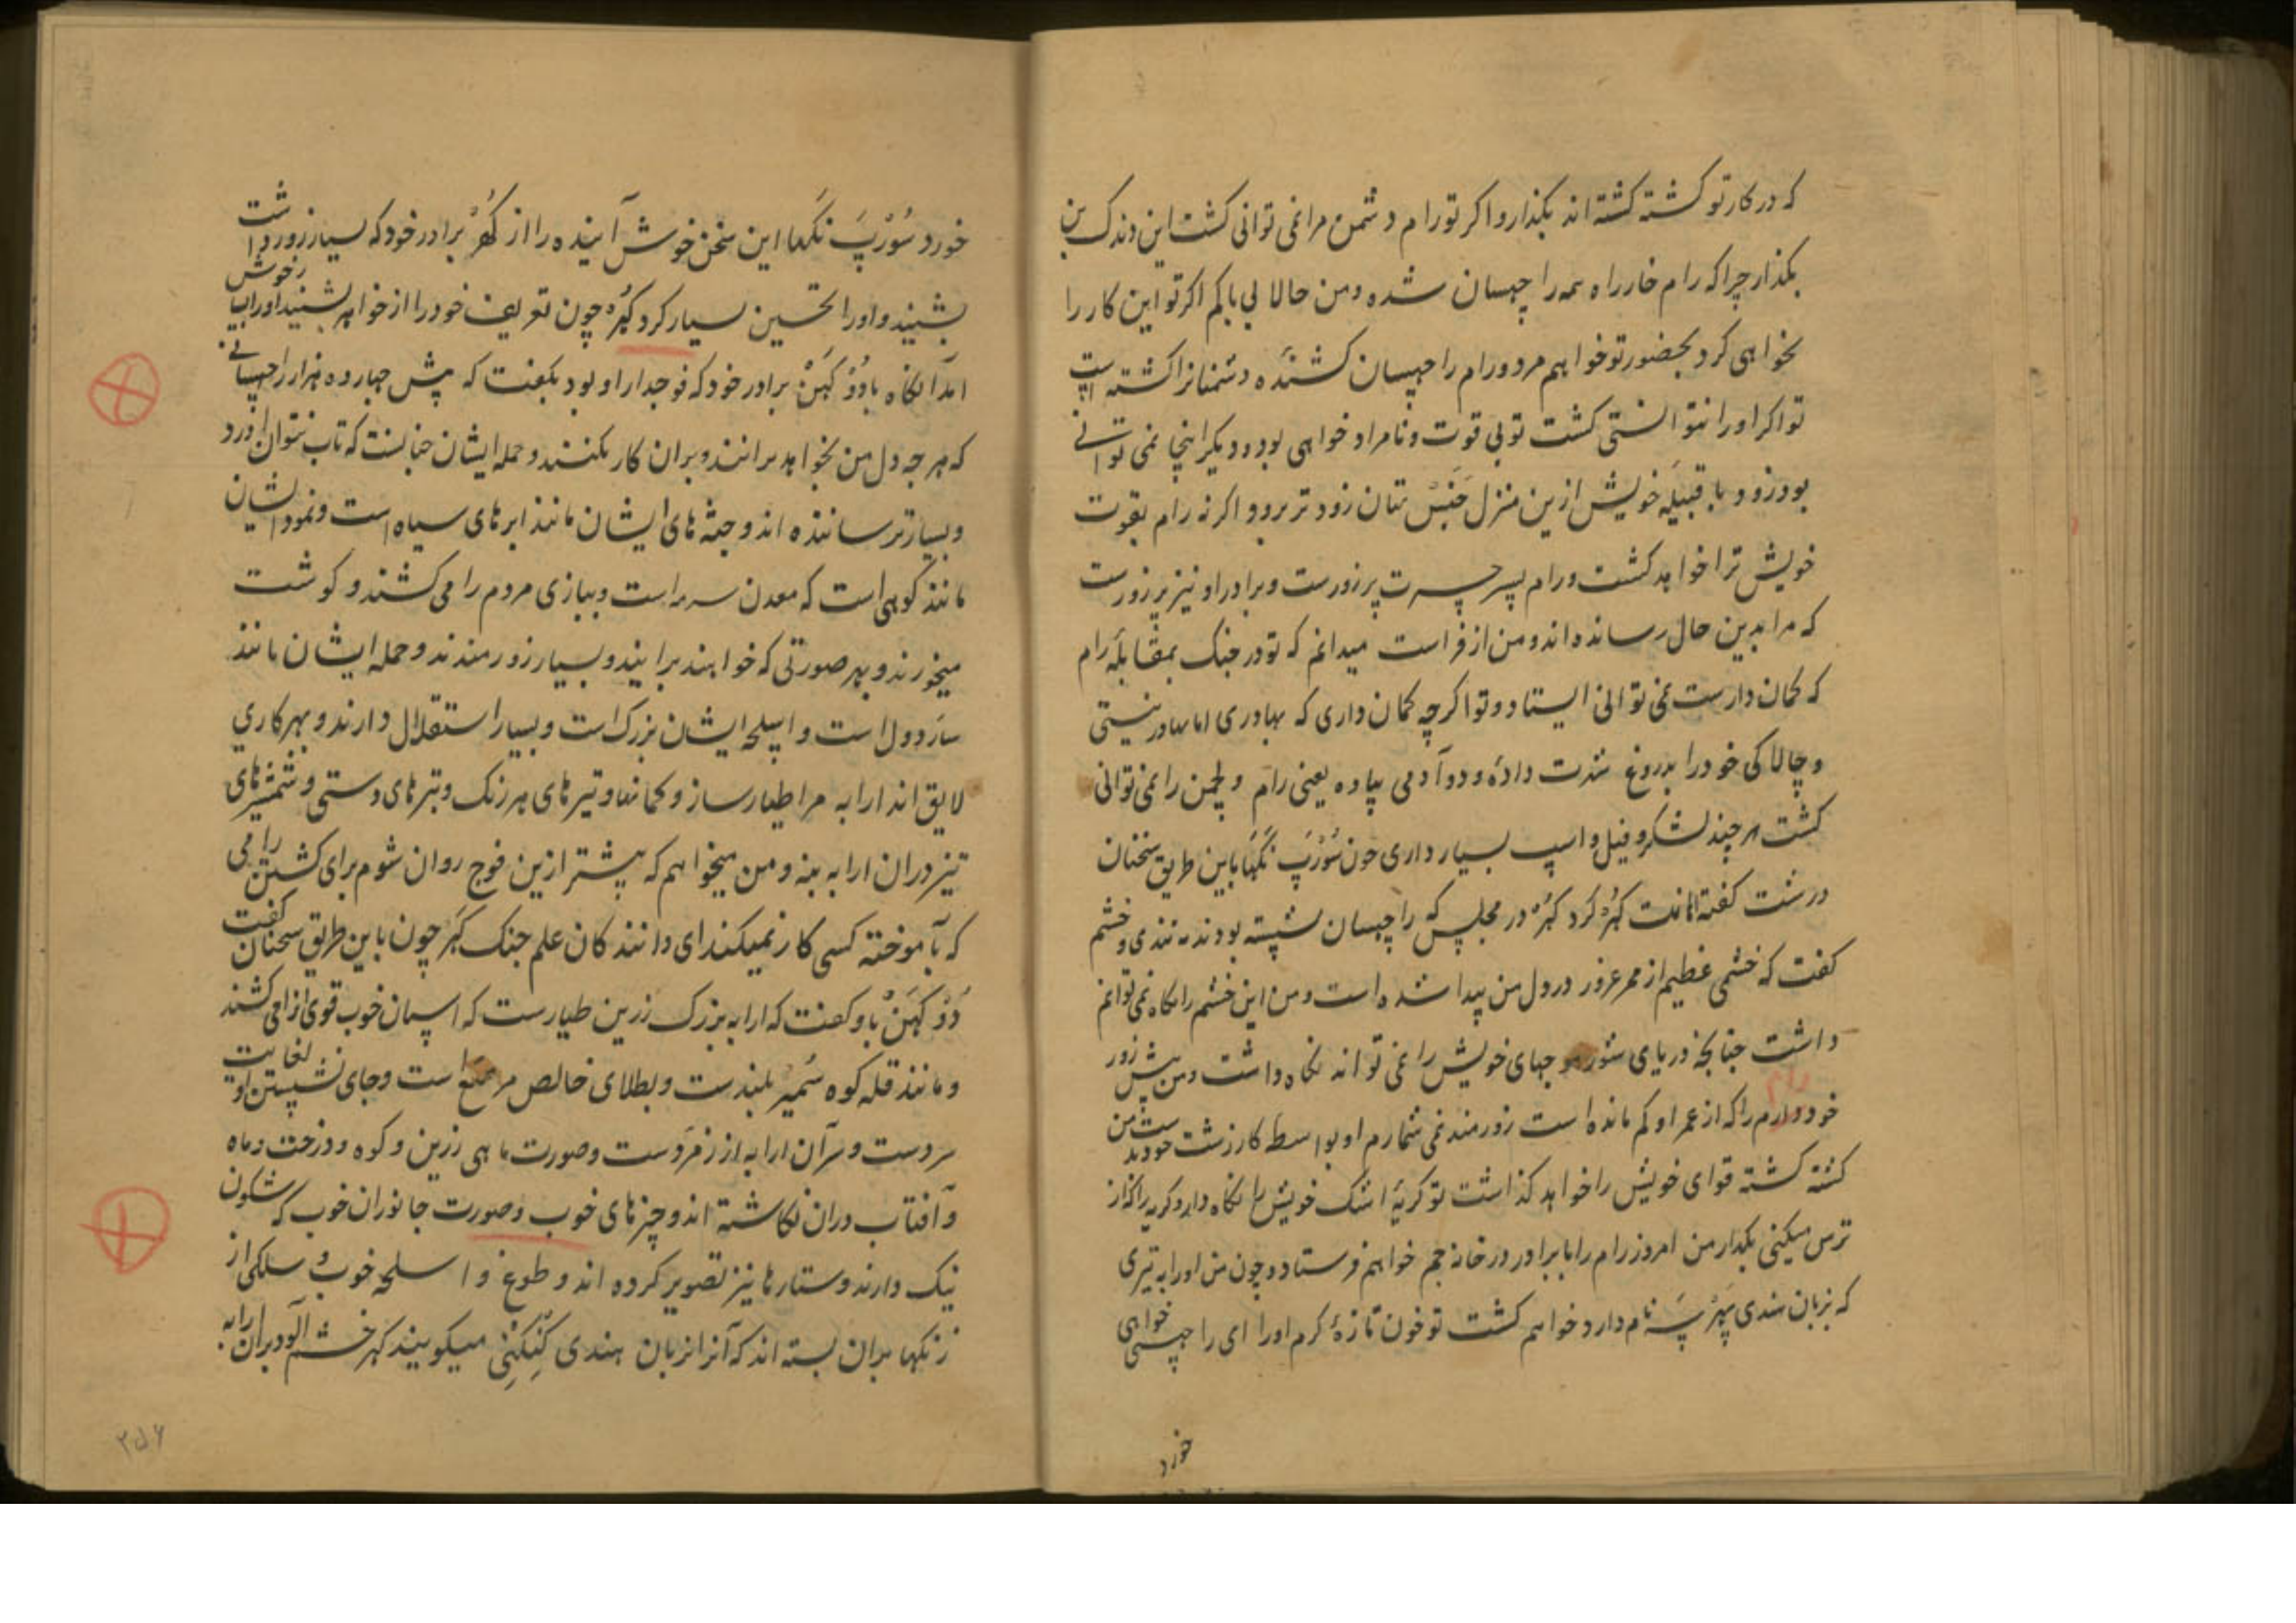 که در کار تو کشته کشته اند بکذار و اکر تو رام دشمن مرا نمی توانی کشت این دندک بن
بکذار چرا که رام خار راه همه راچهسان شده و من حالا بی باکم اکر تو این کار را
نخواهی کرد بحضور تو خواهم مرد و رام راچهسان کشنده دشمنانرا کشته است
تو اکر او را نتوانستی کشت تو بی قوت و نامراد خواهی بود و دیکر اینجا نمی توانی
بود زود با قبیله خویش ازین منزل جنس تتان زود تر برو و اکر نه رام بقوت
خویش ترا خواهد کشت و رام پسر جسرت پر زورست و برادر او نیز پر زورست
که مرا بدین حال رسانده اند و من از فراست میدانم که تو در جنک بمقابله رام
که کمان دارست نمی توانی ایستاد و تو اکرچه کمان داری که بهادری اما بهادر نیستی
و چالاکی خود را بدروغ شهرت داده و دو آدمی پیاده یعنی رام و لچمن را نمی توانی
کشت هر چند لشکر و فیل و اسپ بسیار داری چون سُورْپَ نَکَها باین طریق سخنان
درشت کفته اهانت کهر کرد کهر در مجلس که راچهسان نشسته بودند بتندی و خشم
کفت که خشمی عظیم از ممر غرور در دل من پیدا شده است و من این خشم را نکاه نمی توانم
داشت چنانچه دریای شور موجهای خویش را نمی تواند نکاه داشت و من پیش زور
خود رام را که از عمر او کم مانده است زورمند نمی شمارم او بواسطه کار زشت خود بدست من
کشته کشته قوای خویش را خواهد کذاشت تو کریه اشک خویش را نکاه دار و کریه را کذار
ترس میکنی بکذار من امروز رام را با برادر در خانه جم خواهم فرستاد و چون من او را به تیری
که بزبان هندی پهر پسه نام دارد خواهم کشت تو خون تازه کرم او را ای راچهسی خواهی
خورد
خورد سُورْپَ نَکَها این سخن خوش آینده را از کهر برادر خود که بسیار زور داشت
بشنید و او را تحسین بسیار کرد کهر چون تعریف خود را از خواهر بشنید او را بسیار خوش
امد آنکاه با دُوْ کهن برادر خود که فوجدار او بود بکفت که پیش چهارده هزار راچهسانی
که هر چه دل من بخواهد برانند و بران کار بکنند و حمله ایشان چنانست که تاب نتوان اورد
و بسیار ترساننده اند و جثه های ایشان مانند ابر های سیاه است و نمود ایشان
مانند کوهی است که معدن سرمه است و ببازی مردم را می کشند و کوشت
میخورند و بهر صورتی که خواهند برایند و بسیار زورمندند و حمله ایشان مانند
ساردول است و اسلحه ایشان بزرک است و بسیار استقلال دارند و بهر کاری
لایق اند ارابه مرا طیار ساز و کمانها و تیر های هر رنک و تبر های دستی و شمشیر های
تیز دران ارابه بنه و من میخواهم که پیشتر ازین فوج روان شوم برای کشتن رامی
که بآموخته کسی کار نمیکند ای دانندکان علم جنک کهر چون باین طریق سخنان کفت
دُوْ کهَن باو کفت که ارابه بزرک زرین طیارست که اسپان خوب قوی انرا می کشند
و مانند قله کوه سُمیر بلندست و بطلای خالص مرصع است و جای نشستن او بغایت
سردست و سر آن ارابه از زمردست و صورت ماهی زرین و کوه و درخت و ماه
و آفتاب دران نکاشته اند و چیز های خوب و صورت جانوران خوب که شکون
نیک دارند و ستارها نیز تصویر کرده اند و طوغ و اسلحه خوب و سلکی از
زنکها بران بسته اند که آنرا بزبان هندی کِنْکِنِی میکویند کهر خشم آلود بران ارابه
۲۵۶